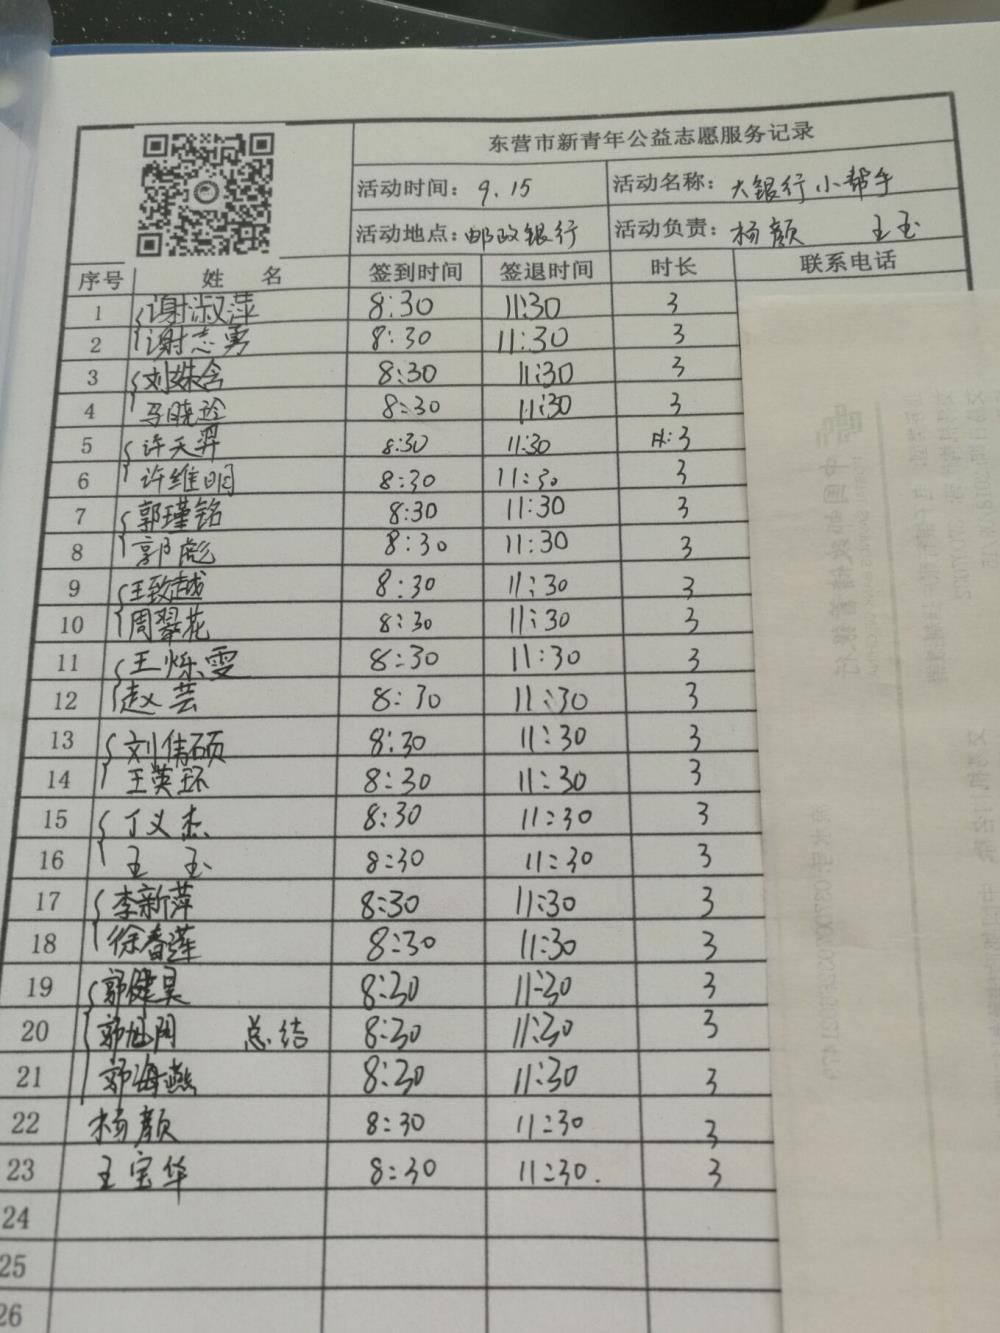 东营市新青年公益志愿服务记录
活动时间：9.15 活动名称：大银行小帮手
活动地点：邮政银行 活动负责：杨颜 王玉
序号 姓名 签到时间 签退时间 时长 联系电话
1 谢淑萍 8:30 11:30 3
2 谢志勇 8:30 11:30 3
3 刘姝含 8:30 11:30 3
4 马晓玲 8:30 11:30 3
5 许天羿 8:30 11:30 3
6 许维明 8:30 11:30 3
7 郭瑾铭 8:30 11:30 3
8 郭彪 8:30 11:30 3
9 王致越 8:30 11:30 3
10 周翠花 8:30 11:30 3
11 王烁雯 8:30 11:30 3
12 赵芸 8:30 11:30 3
13 刘倩硕 8:30 11:30 3
14 王英环 8:30 11:30 3
15 丁义杰 8:30 11:30 3
16 王玉 8:30 11:30 3
17 李新萍 8:30 11:30 3
18 徐春莲 8:30 11:30 3
19 郭健昊 8:30 11:30 3
20 总结 8:30 11:30 3
21 郭海燕 8:30 11:30 3
22 杨颜 8:30 11:30 3
23 王宝华 8:30 11:30. 3
24
25
26